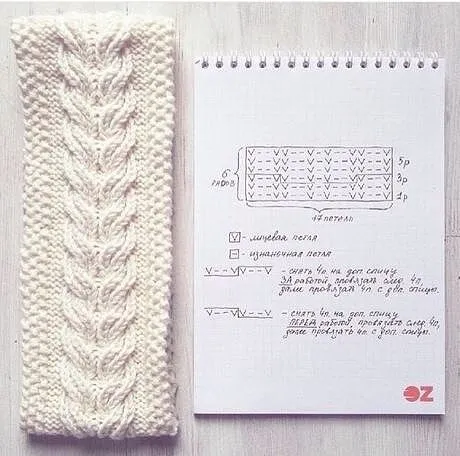 6
рядов
5р
3р
1р
17 петель
V - лицевая петля
− - изнаночная петля
V−−V V−−V - снять 4п. на доп. спицу
ЗА работой, провязать след. 4п,
далее провязать 4п. с доп. спицы.
V−−V V−−V - снять 4п. на доп. спицу
ПЕРЕД работой, провязать след. 4п,
далее провязать 4п. с доп. спицы.
OZ